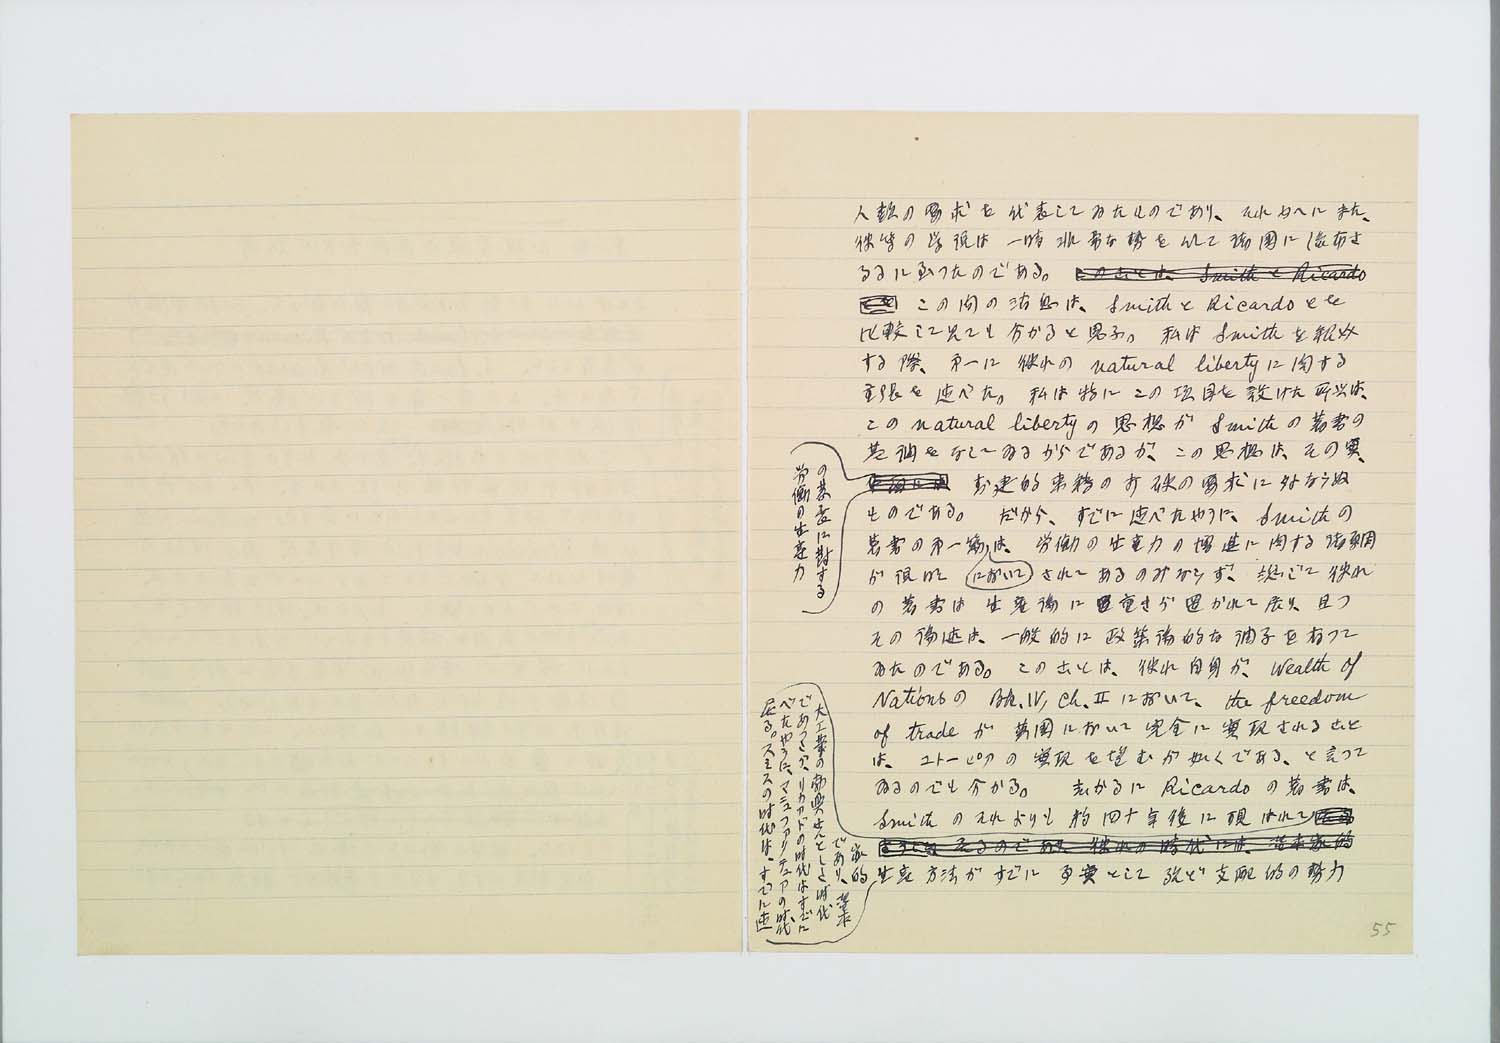 人類の要求を代表してゐたものであり、それゆへにまた、
彼等の学説は一時非常な勢を以て諸国に流布さ
るるに至つたのである。このことは、Smith と Ricardo
この間の消息は、Smith と Ricardo とを
比較して見ても分かると思ふ。私は Smith を紹介
する際、第一に彼れの natural liberty に関する
主張を述べた。私は特にこの項目を設けた所以は、
この natural liberty の思想が Smith の著書の
基調をなしてゐるからであるが、この思想は、その実、
封建的束縛の打破の要求に外ならぬ
ものである。だから、すでに述べたやうに、Smith の
著書の第一篇は、労働の生産力の増進に関する
が においてされてあるのみならず、総じて彼れ
の著書は生産論に重きが置かれて居り、且つ
その論述は、一般的に政策論的な調子を有つて
ゐたのである。このことは、彼れ自身が、Wealth of
Nations の Bk. IV, Ch. II において、the freedom
of trade が英国において完全に実現されること
は、ユトーピアの実現を望むが如くである、と言つて
ゐるのでも分かる。しかるに Ricardo の著書は、
Smith のそれよりも約四十年後に現はれて
るのであり 彼れの時代には、資本家的
生産方法がすでに事実として殆ど支配的の勢力
労働の生産力
に対する
大工業の勃興せんとしし時代
であつたが、リカアドの時代はすでに
べたやうに、マニュファクチュアの時代
居る。スミスの時代は、すでに述
であり、資本
家的
55